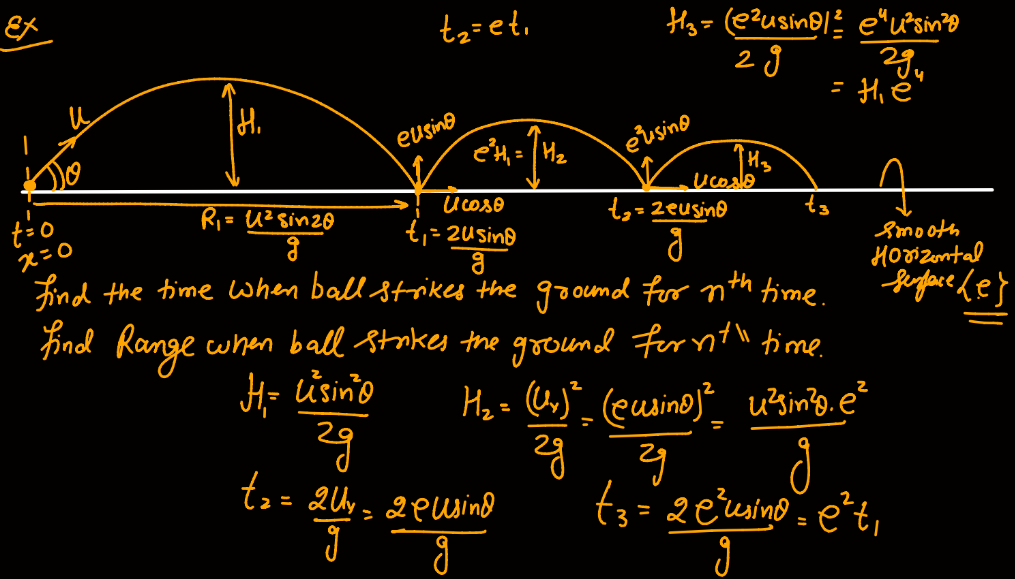 Ex
t₂ = et₁
H₃ = (e²usinθ)²/2g = e⁴u²sin²θ/2g
= H₁e⁴
u
θ
H₁
eusinθ
e²H₁ = H₂
e²usinθ
H₃
ucosθ
ucosθ
t=0
x=0
R₁ = u²sin2θ/g
t₁ = 2usinθ/g
t₂ = 2eusinθ/g
t₃
smooth
Horizontal
surface {e}
find the time when ball strikes the ground for nth time.
find Range when ball strikes the ground for nth time.
H₁ = u²sin²θ/2g
H₂ = (uᵧ)²/2g = (eusinθ)²/2g = u²sin²θ.e²/g
t₂ = 2uᵧ/g = 2eusinθ/g
t₃ = 2e²usinθ/g = e²t₁